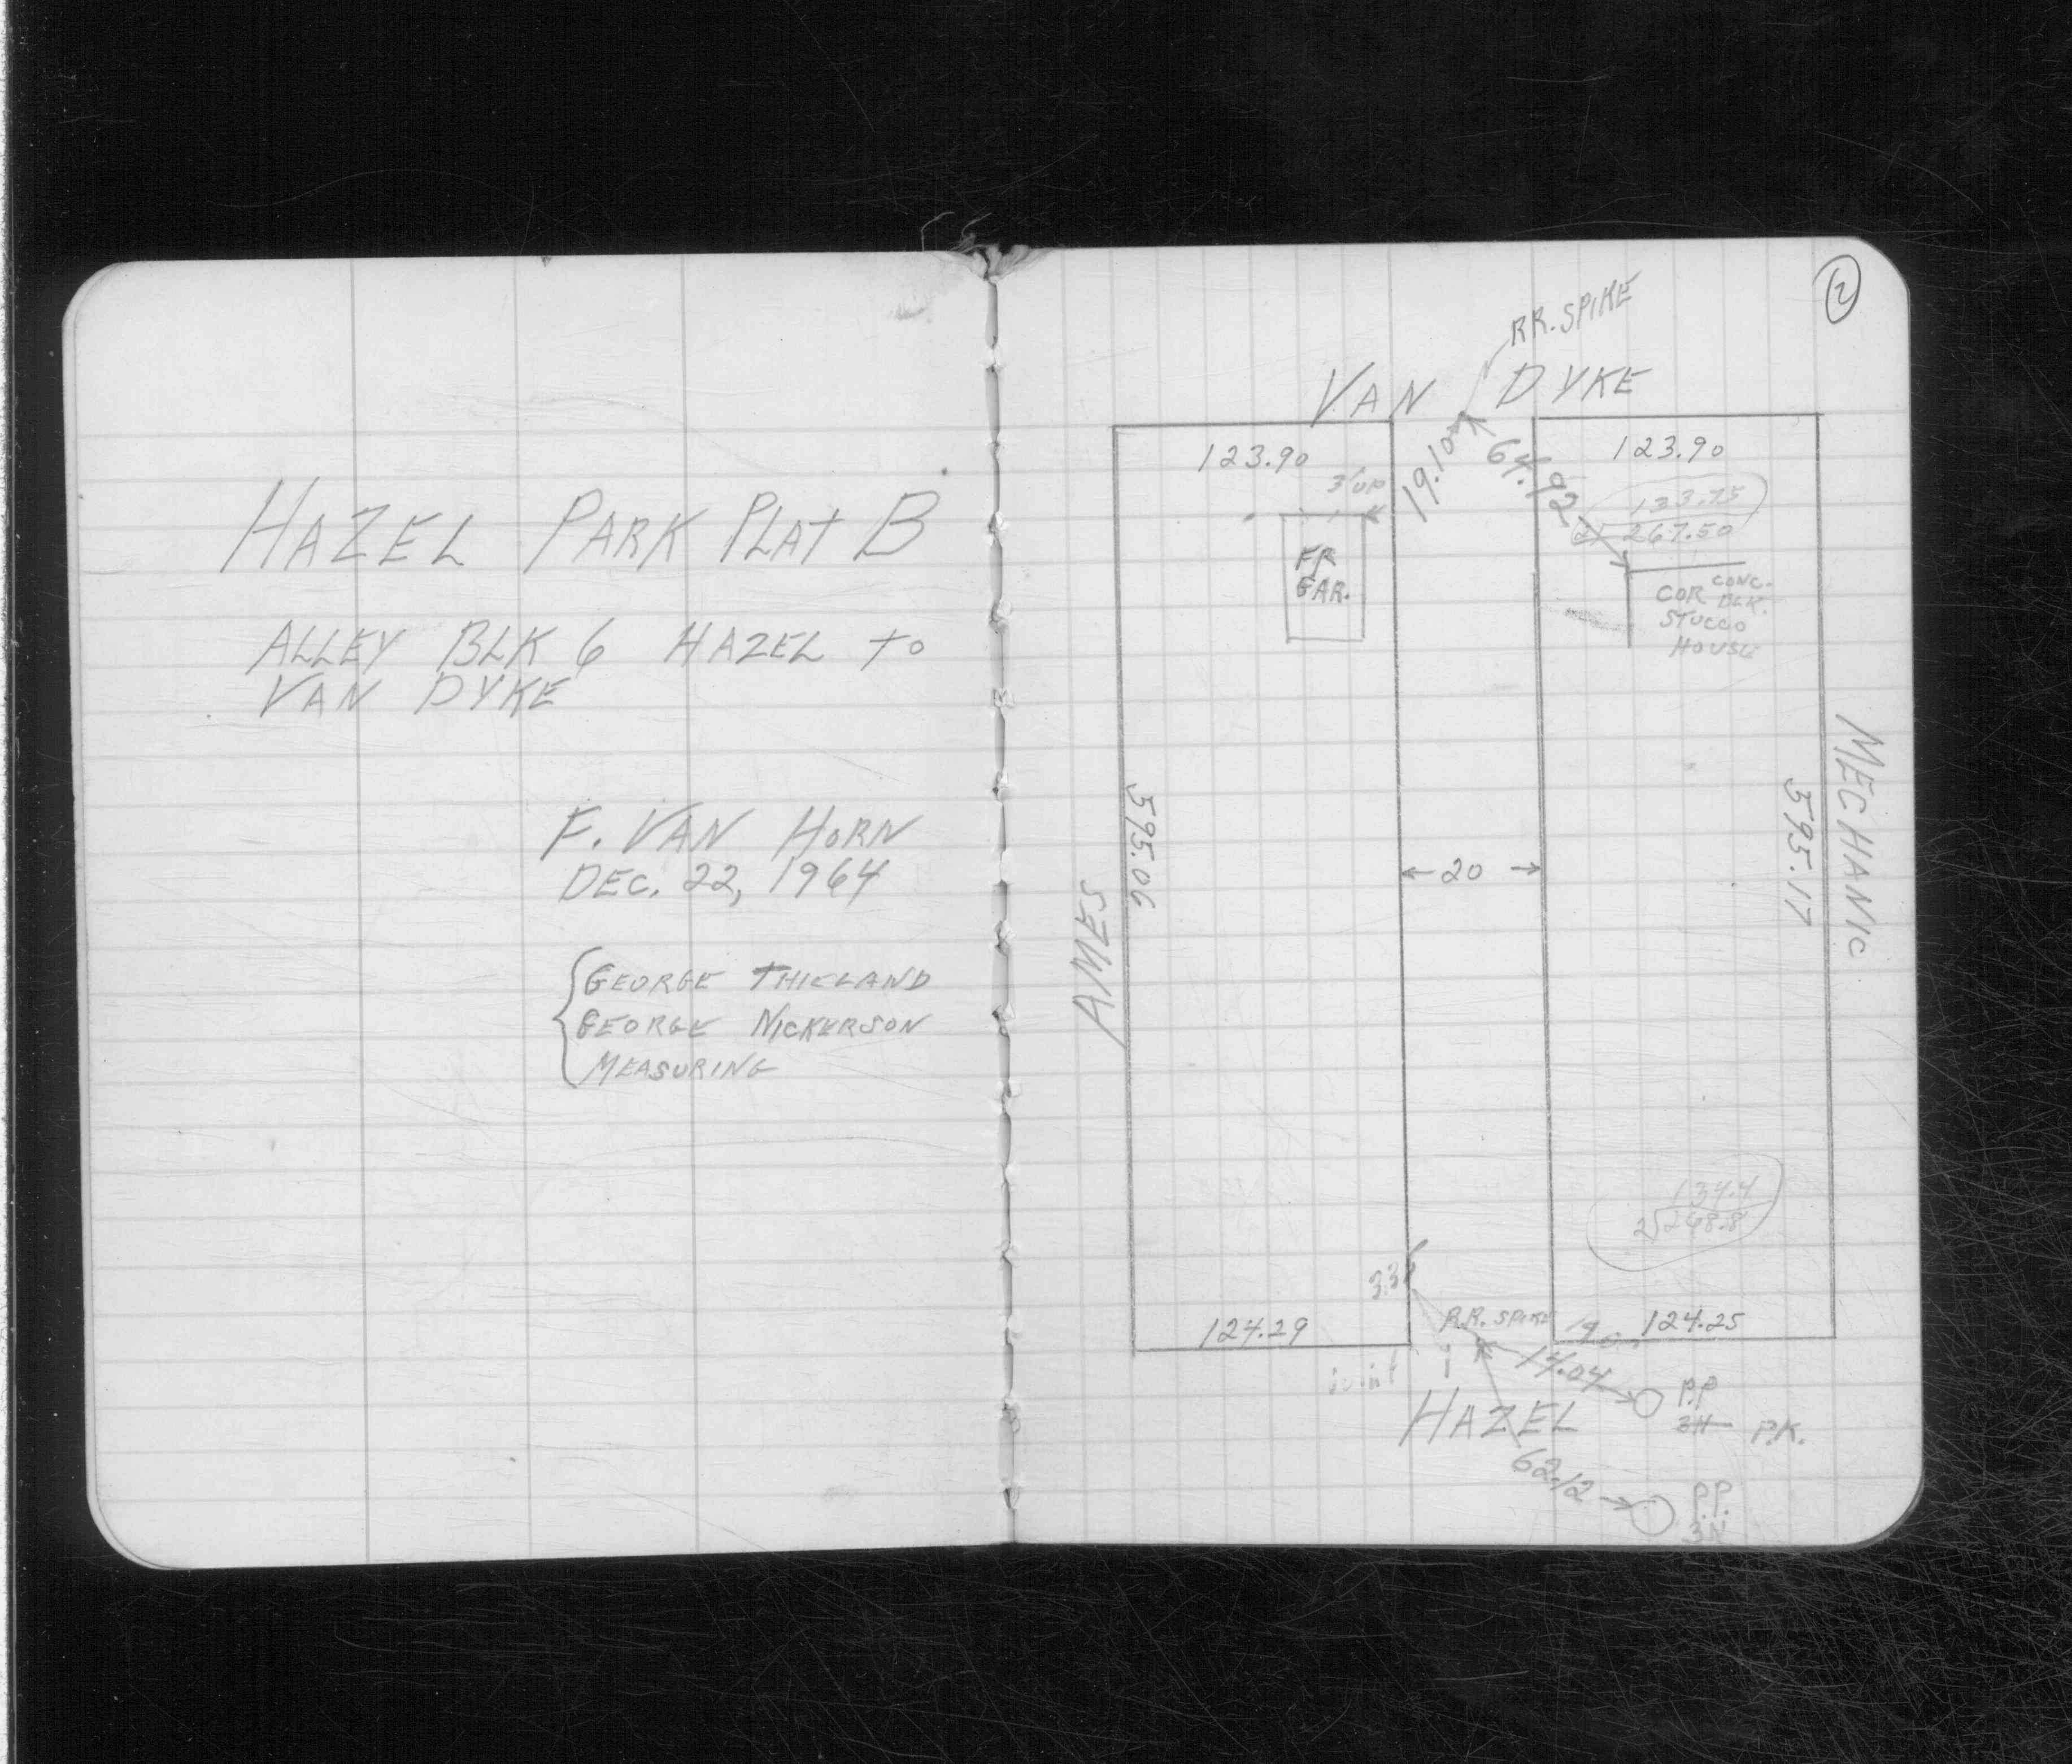 HAZEL PARK PLAT B
ALLEY BLK 6 HAZEL to
VAN DYKE
F. VAN HORN
DEC. 22, 1964
GEORGE THIELAND
GEORGE NICKERSON
MEASURING
2
RR. SPIKE
VAN DYKE
123.90
19.10
64.92
123.90
3' UP
133.75
2) 267.50
FR
GAR.
COR CONC.
BLK.
STUCCO
HOUSE
MECHANIC
595.06
595.17
20
AMES
134.4
2) 268.8
3.38
R.R. SPIKE
124.29
124.25
14.04
P.P
3N P.K.
HAZEL
62.12
P.P.
3N